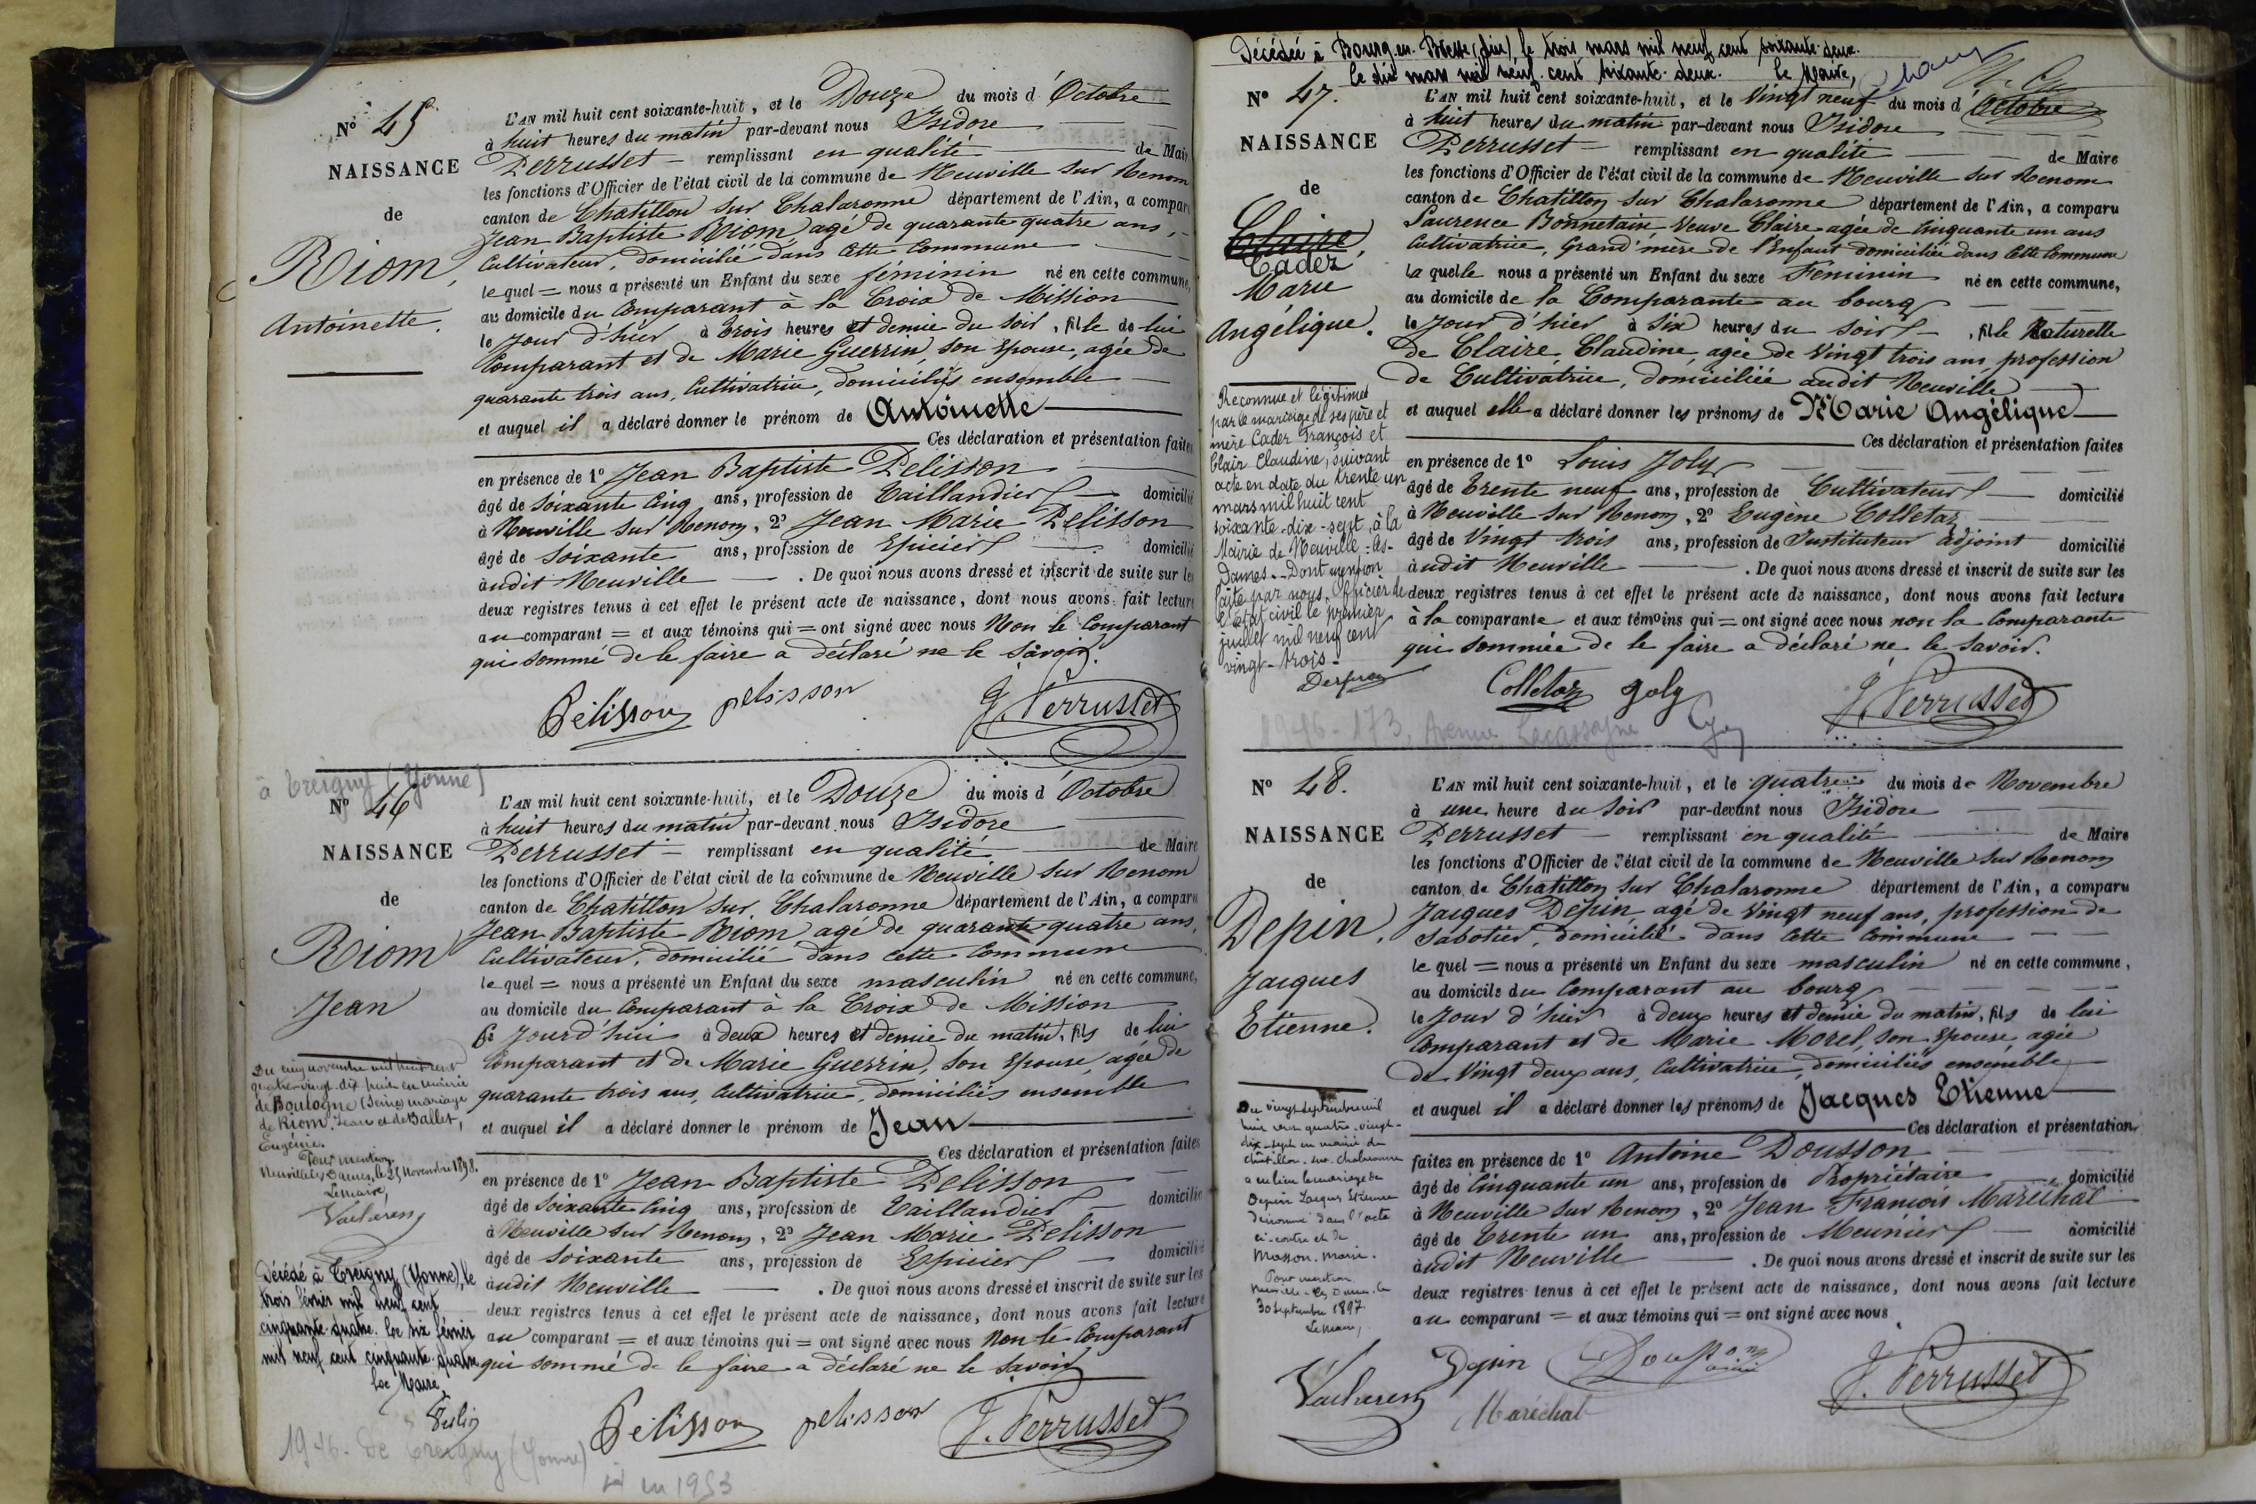 N° 45
NAISSANCE
de
Riom,
Antoinette.
L'AN mil huit cent soixante-huit, et le Douze du mois d'Octobre
à huit heures du matin par-devant nous Isidore
Perrusset remplissant en qualité de Mair
les fonctions d'Officier de l'état civil de la commune de Neuville sur Renom
canton de Chatillon sur Chalaronne département de l'Ain, a comparu
Jean Baptiste Riom agé de quarante quatre ans,
Cultivateur, domicilié dans cette Commune
le quel = nous a présenté un Enfant du sexe féminin né en cette commune,
au domicile du Comparant à la Croix de Mission
le Jour d'hier à trois heures et demie du soir, fille de lui
Comparant et de Marie Guerrin, son Epouse, agée de
quarante trois ans, Cultivatrice, domiciliés ensemble
et auquel il a déclaré donner le prénom de Antoinette
Ces déclaration et présentation faites
en présence de 1° Jean Baptiste Pelisson
âgé de soixante cinq ans, profession de Taillandier domicilié
à Neuville sur Renom, 2° Jean Marie Pelisson
âgé de soixante ans, profession de Epicier domicilié
audit Neuville . De quoi nous avons dressé et inscrit de suite sur les
deux registres tenus à cet effet le présent acte de naissance, dont nous avons fait lecture
au comparant = et aux témoins qui = ont signé avec nous Non le Comparant
qui sommé de le faire a déclaré ne le savoir.
Pélisson pelisson J. Perrusset
à Treigny (Yonne)
N° 46
NAISSANCE
de
Riom
Jean
Du cinq novembre mil huit cent
quatre-vingt-dix huit en mairie
de Boulogne (Seine) mariage
de Riom, Jean et de Ballet,
Eugénie.
Pour mention,
Neuville les Dames, le 25 Novembre 1898.
Le maire,
Décédé à Treigny (Yonne), le
trois février mil neuf cent
cinquante-quatre. Le six février
mil neuf cent cinquante-quatre
Le Maire,
L'AN mil huit cent soixante-huit, et le Douze du mois d'Octobre
à huit heures du matin par-devant nous Isidore
Perrusset remplissant en qualité de Maire
les fonctions d'Officier de l'état civil de la commune de Neuville sur Renom
canton de Chatillon sur Chalaronne département de l'Ain, a comparu
Jean Baptiste Riom agé de quarante quatre ans,
Cultivateur, domicilié dans cette Commune
le quel = nous a présenté un Enfant du sexe masculin né en cette commune,
au domicile du Comparant à la Croix de Mission
ce Jourd'hui à deux heures et demie du matin, fils de lui
Comparant et de Marie Guerrin, son Epouse, agée de
quarante trois ans, Cultivatrice, domiciliés ensemble
et auquel il a déclaré donner le prénom de Jean
Ces déclaration et présentation faites
en présence de 1° Jean Baptiste Pelisson
âgé de soixante cinq ans, profession de Taillandier domicilié
à Neuville sur Renom, 2° Jean Marie Pelisson
âgé de soixante ans, profession de Epicier domicilié
audit Neuville . De quoi nous avons dressé et inscrit de suite sur les
deux registres tenus à cet effet le présent acte de naissance, dont nous avons fait lecture
au comparant = et aux témoins qui = ont signé avec nous Non le Comparant
qui sommé de le faire a déclaré ne le savoir
Pelisson pelisson J. Perrusset
1946. de Treigny (Yonne)
en 1953
Décédée à Bourg-en-Bresse (Ain) le trois mars mil neuf cent soixante-deux.
le dix mars mil neuf cent soixante-deux. Le Maire,
N° 47.
NAISSANCE
de
Claire,
Cadez
Marie
Angélique.
Reconnue et légitimée
par le mariage de ses père et
mère Cader François et
Clair Claudine, suivant
acte en date du trente un
mars mil huit cent
soixante-dix-sept, à la
Mairie de Neuville-les-
Dames. - Dont mention
faite par nous, Officier de
l'état civil le premier
juillet mil neuf cent
vingt-trois-
L'AN mil huit cent soixante-huit, et le Vingt neuf du mois d'Octobre
à huit heures du matin par-devant nous Isidore
Perrusset remplissant en qualité de Maire
les fonctions d'Officier de l'état civil de la commune de Neuville sur Renom
canton de Chatillon sur Chalaronne département de l'Ain, a comparu
Laurence Bonnetain, Veuve Claire agée de Cinquante un ans
Cultivatrice, Grand'mère de l'Enfant domiciliée dans cette Commune
la quelle nous a présenté un Enfant du sexe Feminin né en cette commune,
au domicile de la Comparante au bourg
le Jour d'hier à six heures du soir, fille Naturelle
de Claire, Claudine, agée de Vingt trois ans, profession
de Cultivatrice, domiciliée audit Neuville
et auquel elle a déclaré donner les prénoms de Marie Angélique
Ces déclaration et présentation faites
en présence de 1° Louis Joly
âgé de Trente neuf ans, profession de Cultivateur domicilié
à Neuville sur Renom, 2° Eugène Colletaz
âgé de Vingt trois ans, profession de Instituteur adjoint domicilié
audit Neuville . De quoi nous avons dressé et inscrit de suite sur les
deux registres tenus à cet effet le présent acte de naissance, dont nous avons fait lecture
à la comparante et aux témoins qui = ont signé avec nous non la Comparante
qui sommée de le faire a déclaré ne le savoir.
Colletaz Joly J. Perrusset
1946-173, Avenue Lacassagne
N° 48.
NAISSANCE
de
Depin,
Jacques
Etienne.
Du vingt septembre mil
huit cent quatre-vingt-
dix-sept en mairie de
Châtillon-sur-Chalaronne
a eu lieu le mariage de
Depin Jacques Etienne
dénommé dans l'acte
ci-contre et de
Masson, Marie.
Pour mention
Neuville-les-Dames, le
30 septembre 1897
Le Maire,
L'AN mil huit cent soixante-huit, et le quatre du mois de Novembre
à une heure du soir par-devant nous Isidore
Perrusset remplissant en qualité de Maire
les fonctions d'Officier de l'état civil de la commune de Neuville sur Renom
canton de Chatillon sur Chalaronne département de l'Ain, a comparu
Jacques Depin, agé de Vingt neuf ans, profession de
Sabotier, domicilié dans cette Commune
le quel = nous a présenté un Enfant du sexe masculin né en cette commune,
au domicile du Comparant au bourg
le Jour d'hier à deux heures et demie du matin, fils de lui
Comparant et de Marie Morel, son Epouse agée
de Vingt deux ans, Cultivatrice, domiciliés ensemble
et auquel il a déclaré donner les prénoms de Jacques Etienne
Ces déclaration et présentation
faites en présence de 1° Antoine Dousson
âgé de Cinquante un ans, profession de Propriétaire domicilié
à Neuville sur Renom, 2° Jean François Maréchal
âgé de Trente un ans, profession de Meunier domicilié
audit Neuville . De quoi nous avons dressé et inscrit de suite sur les
deux registres tenus à cet effet le présent acte de naissance, dont nous avons fait lecture
au comparant = et aux témoins qui = ont signé avec nous
Depin Dousson J. Perrusset
Maréchal